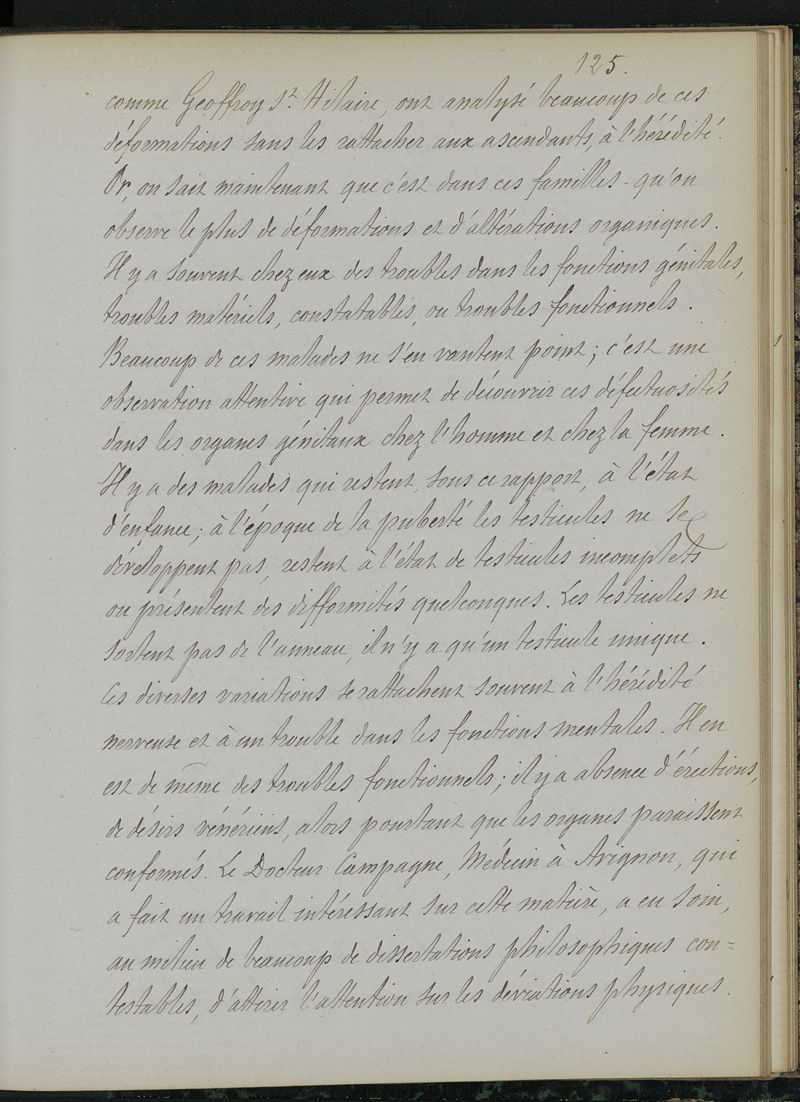 125.
comme Geoffroy St Hilaire, ont analysé beaucoup de ces
déformations sans les rattacher aux ascendants, à l'hérédité.
Or, on sait maintenant que c'est dans ces familles qu'on
observe le plus de déformations et d'altérations organiques.
Il y a souvent chez eux des troubles dans les fonctions génitales,
troubles matériels, constatables, ou troubles fonctionnels.
Beaucoup de ces malades ne s'en vantent point; c'est une
observation attentive qui permet de découvrir ces défectuosités
dans les organes génitaux chez l'homme et chez la femme.
Il y a des malades qui restent, sous ce rapport, à l'état
d'enfance; à l'époque de la puberté les testicules ne se
développent pas, restent à l'état de testicules incomplets
ou présentent des difformités quelconques. Les testicules ne
sortent pas de l'anneau, il n'y a qu'un testicule unique.
Ces diverses variations se rattachent souvent à l'hérédité
nerveuse et à un trouble dans les fonctions mentales. Il en
est de même des troubles fonctionnels; il y a absence d'érections,
de désirs vénériens, alors pourtant que les organes paraissent
conformés. Le Docteur Campagne, Médecin à Avignon, qui
a fait un travail intéressant sur cette matière, a eu soin,
au milieu de beaucoup de dissertations philosophiques con=
testables, d'attirer l'attention sur les déviations physiques.